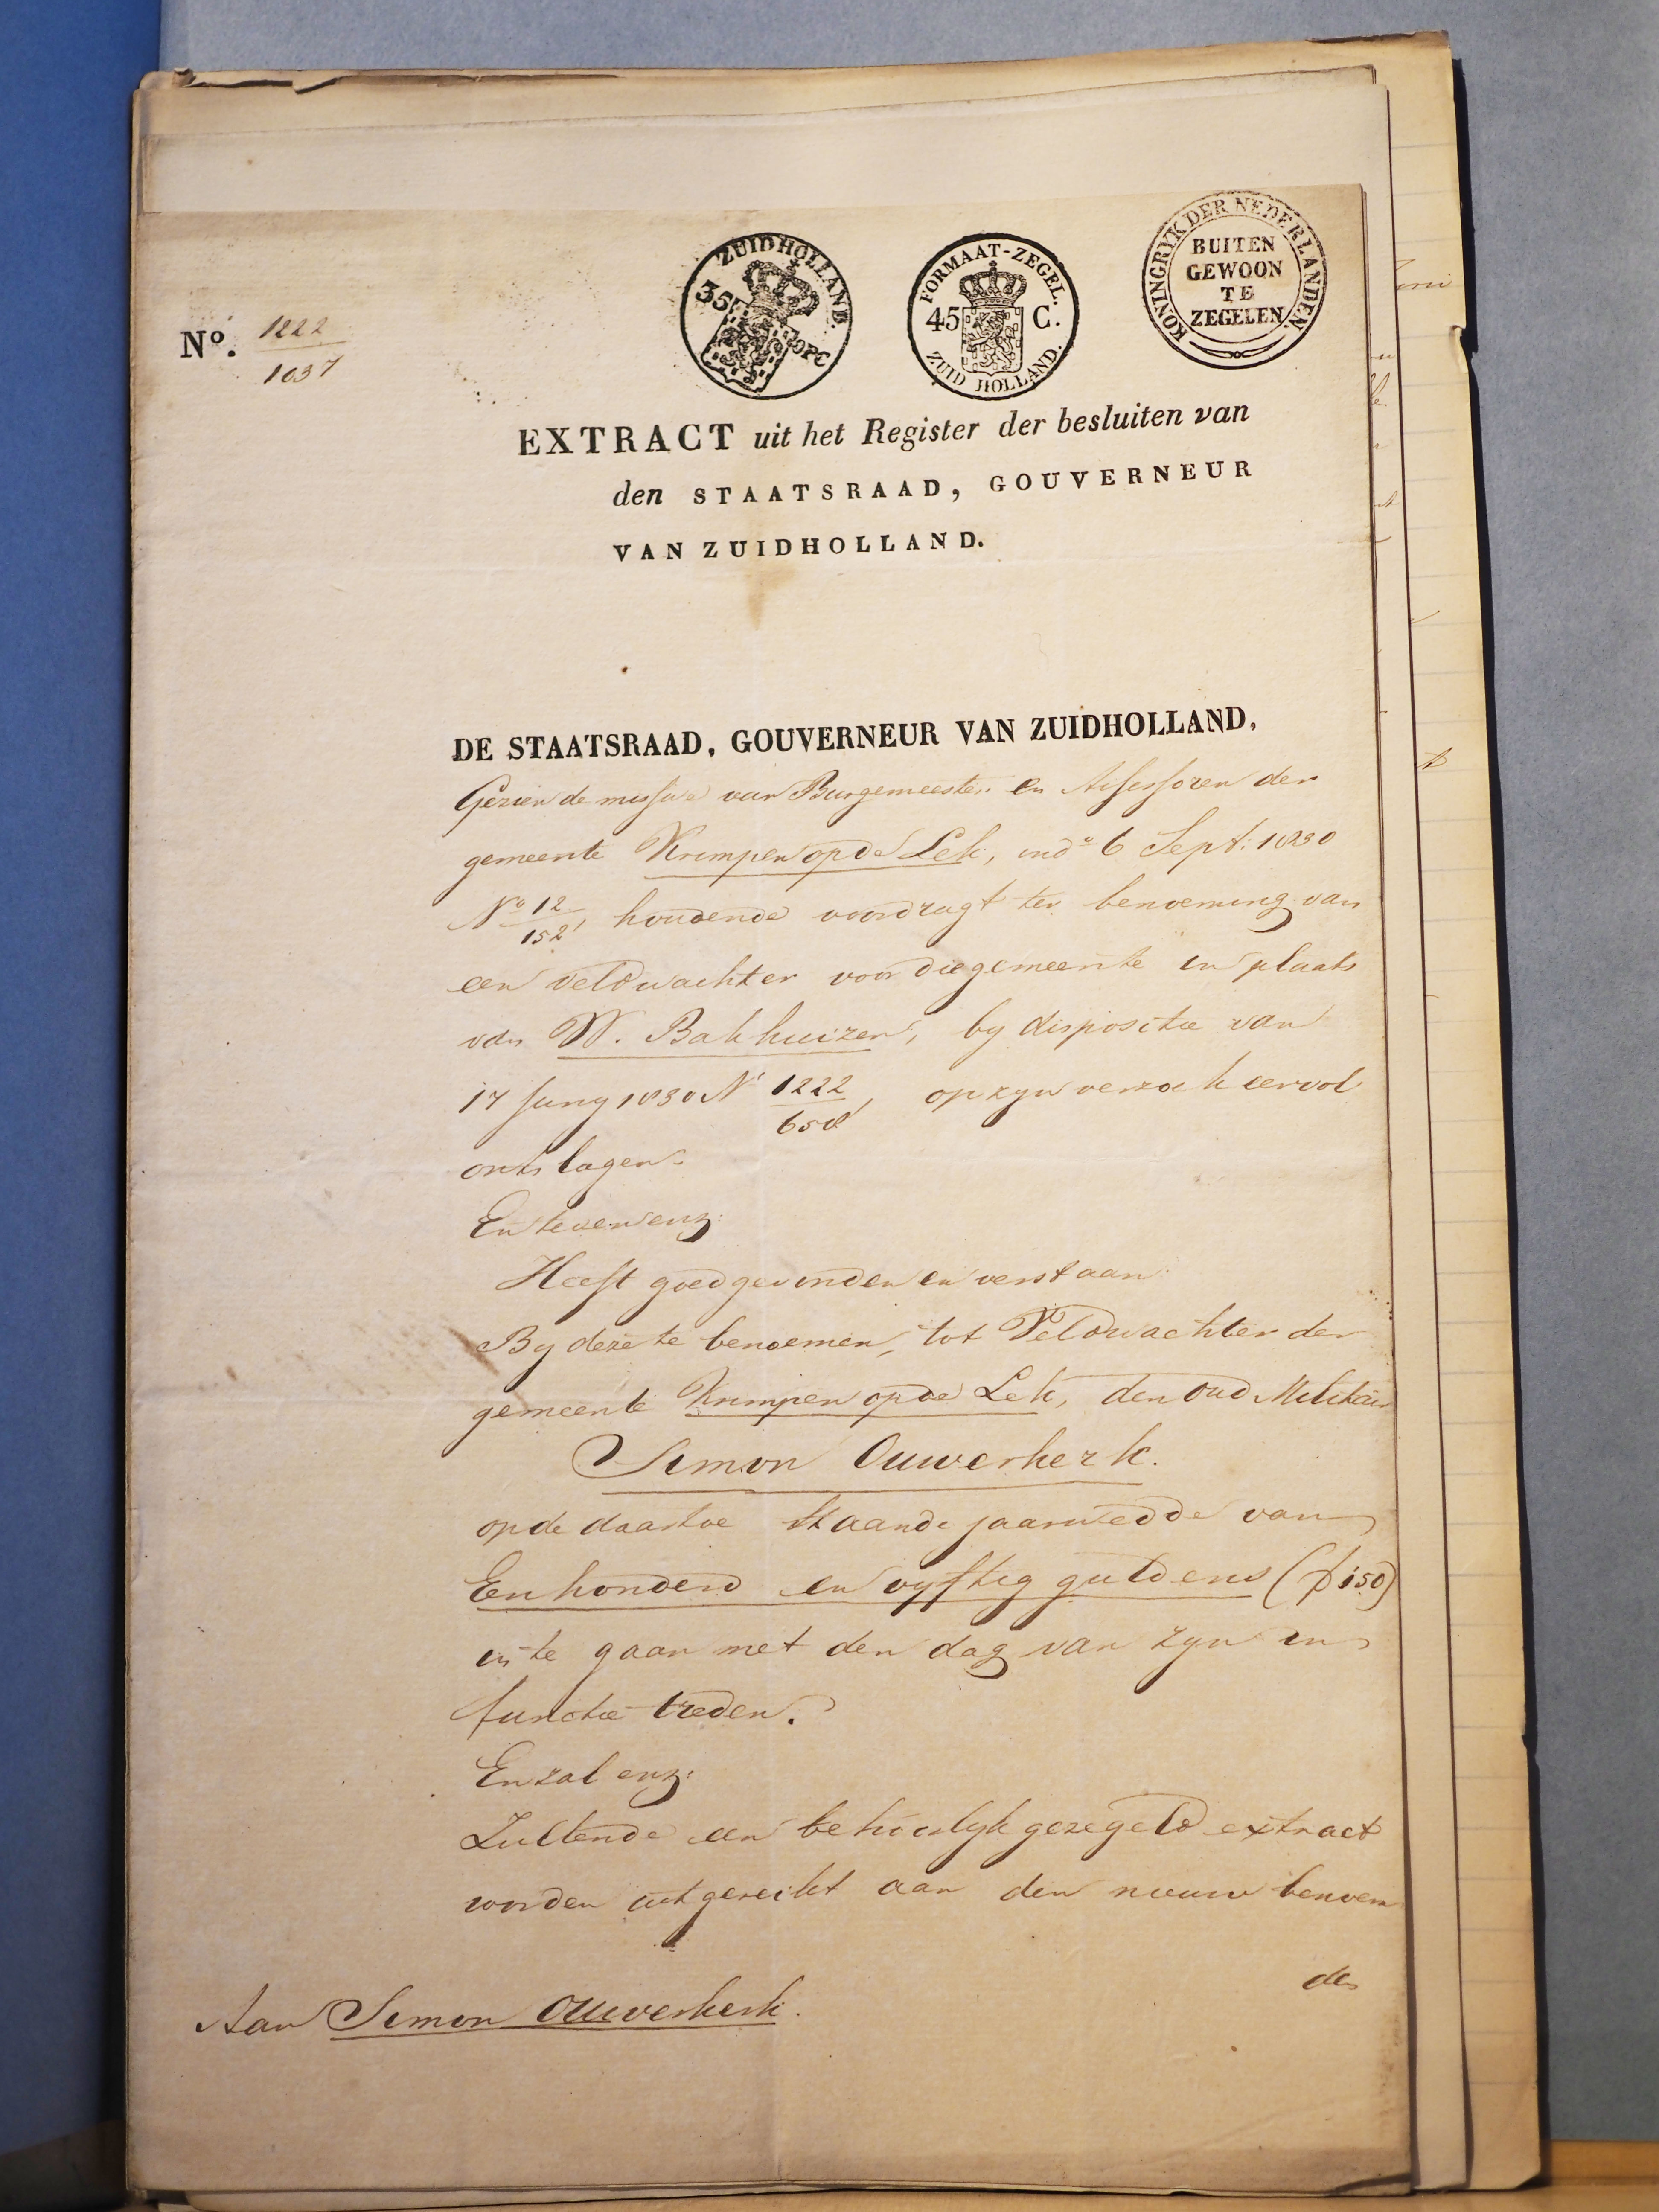 ZUIDHOLLAND.
35 OPC
FORMAAT-ZEGEL.
45 C.
ZUID HOLLAND.
KONINGRYK DER NEDERLANDEN
BUITEN
GEWOON
TE
ZEGELEN
No. 1222
1037
EXTRACT uit het Register der besluiten van
den STAATSRAAD, GOUVERNEUR
VAN ZUIDHOLLAND.
DE STAATSRAAD, GOUVERNEUR VAN ZUIDHOLLAND,
Gezien de missive van Burgemeester en Assessoren der
gemeente Krimpen op de Lek, 6 Sept: 1830
No 12
152, houdende voordragt ter benoeming van
een veldwachter voor die gemeente in plaats
van W. Bakhuizen, by dispositie van
17 Juny 1830 No 1222
658, op zyn verzoek eervol
ontslagen.
En enz:
Heeft goedgevonden en verstaan
By deze te benoemen, tot Veldwachter der
gemeente Krimpen op de Lek, den Oud Militair
Simon Ouwerkerk.
op de daartoe staande jaarwedde van
Een honderd en vyftig guldens (ƒ150)
in te gaan met den dag van zyn in
functie treden.
En zal enz:
Zullende een behoorlyk gezegeld extract
worden uitgereikt aan den nieuw benoem
den
Aan Simon Ouwerkerk.